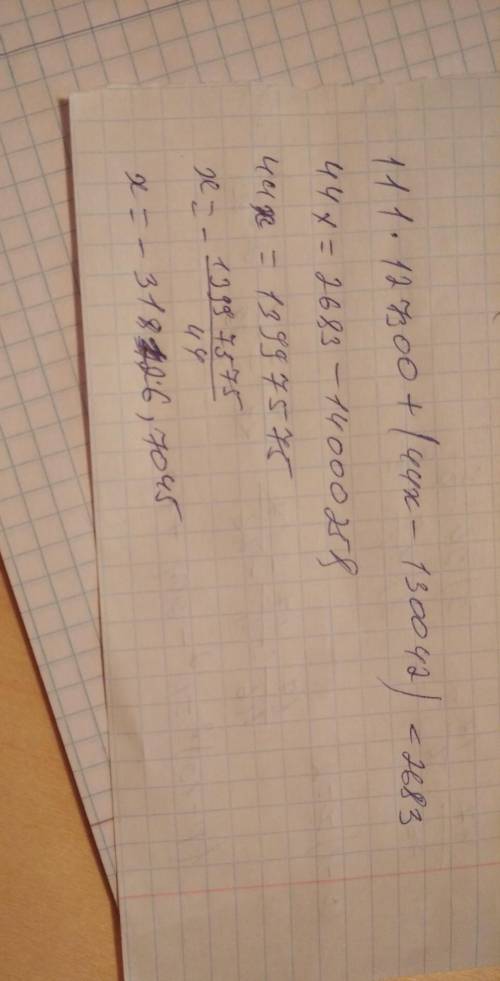 111 · 127300 + (44x - 130042) = 2683
44x = 2683 - 14000258
44x = 13997575
x = - 13997575/44
x = - 318126,7045